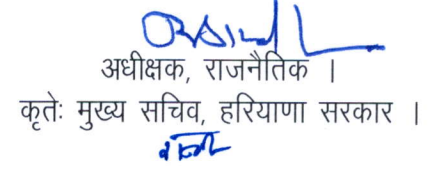 अधीक्षक, राजनैतिक ।
कृतेः मुख्य सचिव, हरियाणा सरकार ।